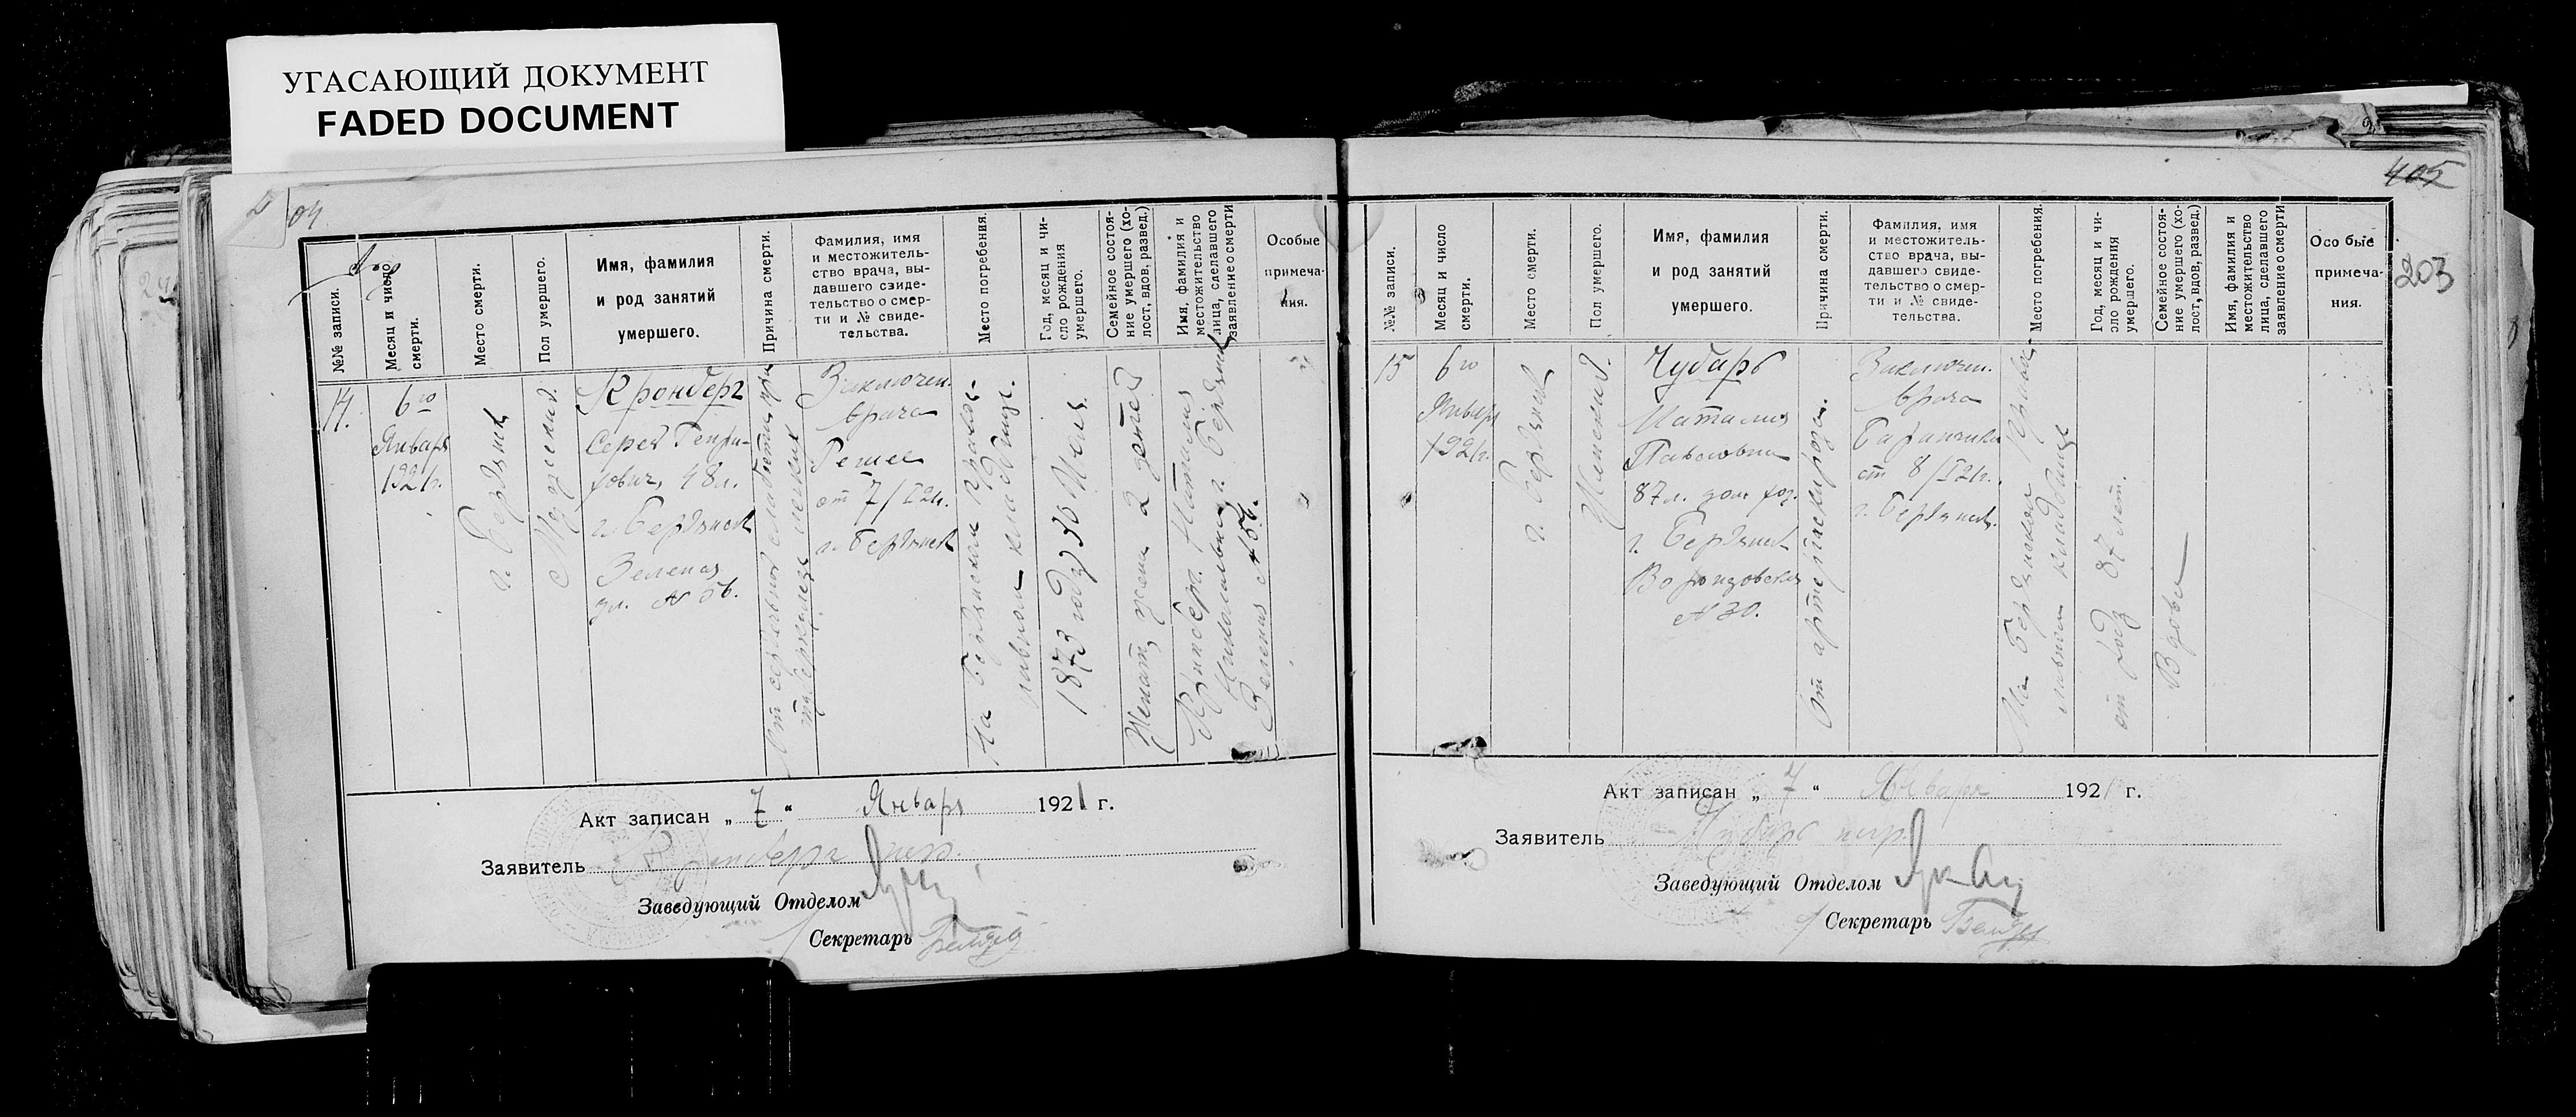 УГАСАЮЩИЙ ДОКУМЕНТ
FADED DOCUMENT
04
№№ записи.
Месяц и число
смерти.
Место смерти.
Пол умершего.
Имя, фамилия
и род занятий
умершего.
Причина смерти.
Фамилия, имя
и местожитель-
ство врача, вы-
давшего свиде-
тельство о смер-
ти и № свиде-
тельства.
Место погребения.
Год, месяц и чи-
сло рождения
умершего.
Семейное состоя-
ние умершего (хо-
лост, вдов, развед.)
Имя, фамилия и
местожительство
лица, сделавшего
заявление о смерти
Особые
примеча-
ния.
14.
6го
Января
1921г.
г. Бердянск
Мужеский.
Кронберг
Сергей Генри-
хович, 48л.
г. Бердянск
Зеленая
ул. №
туберкулез легких
Заключен.
врача
от 7/I 21г.
г. Бердянск
На Бердянском
кладбище.
1873 году 30 Июля.
Женат, жена 2 детей
Кронберг Наталия
г. Бердянск
Зеленая №
Акт записан „ 7 “ Января 1921 г.
Заявитель Кронберг
Заведующий Отделом
Секретарь
405
203
№№ записи.
Месяц и число
смерти.
Место смерти.
Пол умершего.
Имя, фамилия
и род занятий
умершего.
Причина смерти.
Фамилия, имя
и местожитель-
ство врача, вы-
давшего свиде-
тельство о смер-
ти и № свиде-
тельства.
Место погребения.
Год, месяц и чи-
сло рождения
умершего.
Семейное состоя-
ние умершего (хо-
лост, вдов, развед.)
Имя, фамилия и
местожительство
лица, сделавшего
заявление о смерти
Особые
примеча-
ния.
15
6го
Января
1921г.
г. Бердянск
Женский.
Чубарь
Наталия
Павловна
87л. дом. хоз.
г. Бердянск
Воронцовская
№ 30.
От артериосклероза.
Заключен.
врача
от 8/I 21г.
г. Бердянск.
На Бердянском
кладбище
от роду 87 лет.
Вдова
Акт записан „ 7 “ Января 192 г.
Заявитель Чубарь
Заведующий Отделом
Секретарь